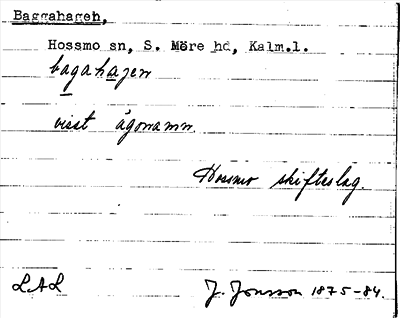 Baggahageh,
Hossmo sn, S. Möre hd, Kalm.l.
bagahagen
visst ägonamn.
Hossmo skifteslag.
LAL
J. Jonsson 1875-84.